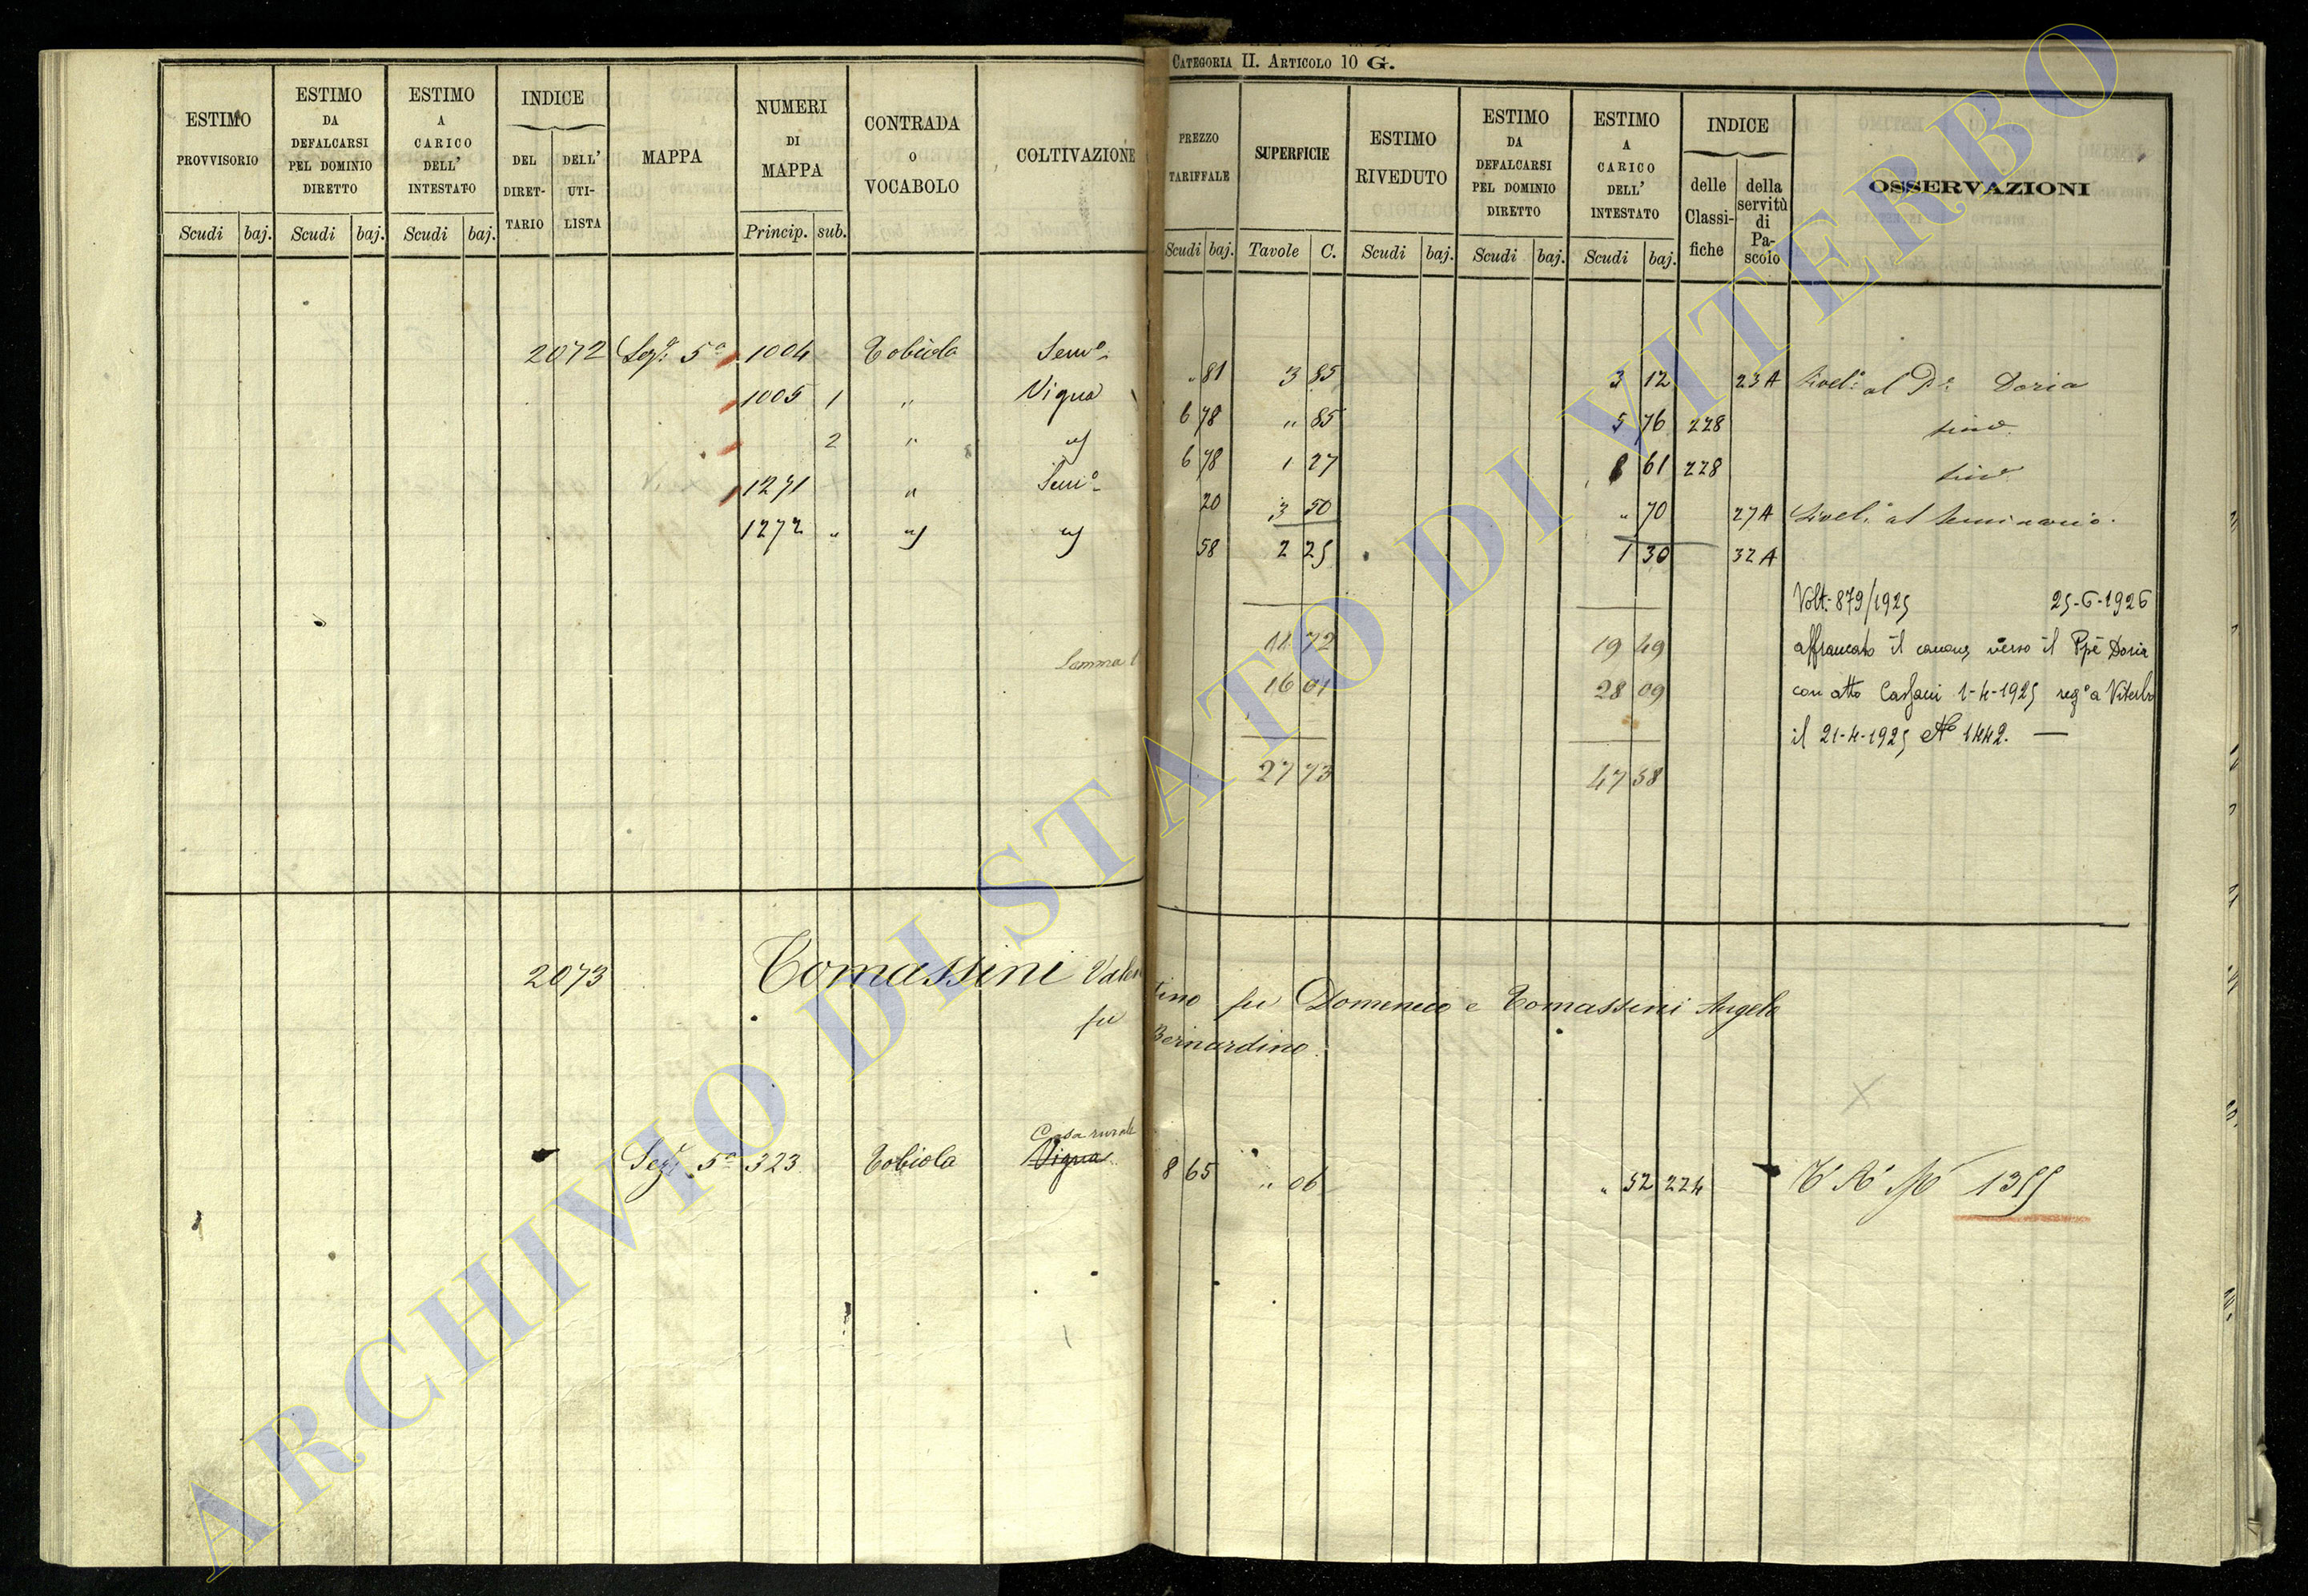 CATEGORIA II. ARTICOLO 10 G.
ESTIMO PROVVISORIO
ESTIMO DA DEFALCARSI PEL DOMINIO DIRETTO
ESTIMO A CARICO DELL' INTESTATO
INDICE
DEL DIRET- TARIO
DELL' UTI- LISTA
MAPPA
NUMERI DI MAPPA
CONTRADA O VOCABOLO
COLTIVAZIONE
PREZZO TARIFFALE
SUPERFICIE
ESTIMO RIVEDUTO
ESTIMO DA DEFALCARSI PEL DOMINIO DIRETTO
ESTIMO A CARICO DELL' INTESTATO
INDICE
delle Classi- fiche
della servitù di Pa- scolo
OSSERVAZIONI
Scudi baj. Scudi baj. Scudi baj. Princip. sub. Scudi baj. Tavole C. Scudi baj. Scudi baj. Scudi baj.
2072 Sez: 5a 1004 Tobiola Semo " 81 3 85 3 12 23A Livel: al Pe: Doria
1005 1 " Vigna 6 78 " 85 5 76 228
2 " " 6 78 1 27 8 61 228
1271 " Semo 20 3 50 " 70 27A Livel: al Seminario.
1272 " " " 58 2 25 1 30 32A
Volt. 879/1925 25-6-1926
11 72 19 49 affrancato il canone verso il Ppe Doria
Somma 16 01 28 09 con atto 1-4-1925 rego a Viterbo
il 21-4-1925 No 1442. —
27 73 47 58
2073 Tomassini Valentino fu Domenico e Tomassini Angelo
fu Bernardino.
Casa rurale
Sez: 5a 323 Tobiola Vigna 8 65 " 06 " 52 224 1355
ARCHIVIO DI STATO DI VITERBO